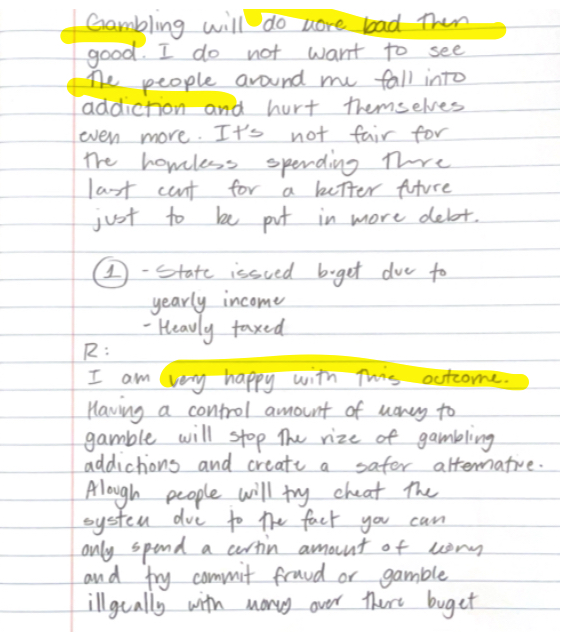 Gambling will do more bad then
good. I do not want to see
the people around me fall into
addiction and hurt themselves
even more. It's not fair for
the homeless spending there
last cent for a better future
just to be put in more debt.
① - State issued buget due to
yearly income
- Heavly taxed
R:
I am very happy with this outcome.
Having a control amount of money to
gamble will stop the rize of gambling
addictions and create a safer alternative.
Alough people will try cheat the
system due to the fact you can
only spend a certin amount of money
and try commit fraud or gamble
illgeally with money over there buget